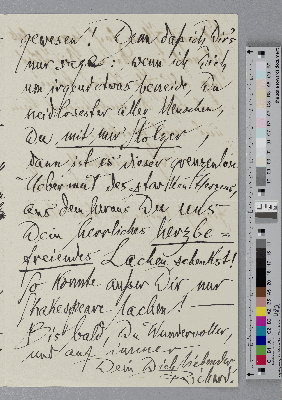 gewesen! Denn daß ich Dir's
nur sage: wenn ich Dich
um irgend etwas beneide, Du
neidlosester aller Menschen,
Du mit mir Stolzer,
dann ist es dieser grenzenlose
Uebermut des starken Herzens,
aus dem heraus Du uns
Dein herrliches herzbe=
freiendes Lachen schenkst!
So konnte außer Dir nur
Shakespeare lachen! —
Bist bald, Du Wundervoller,
und auf immer
Dein Dich liebender
Richard.